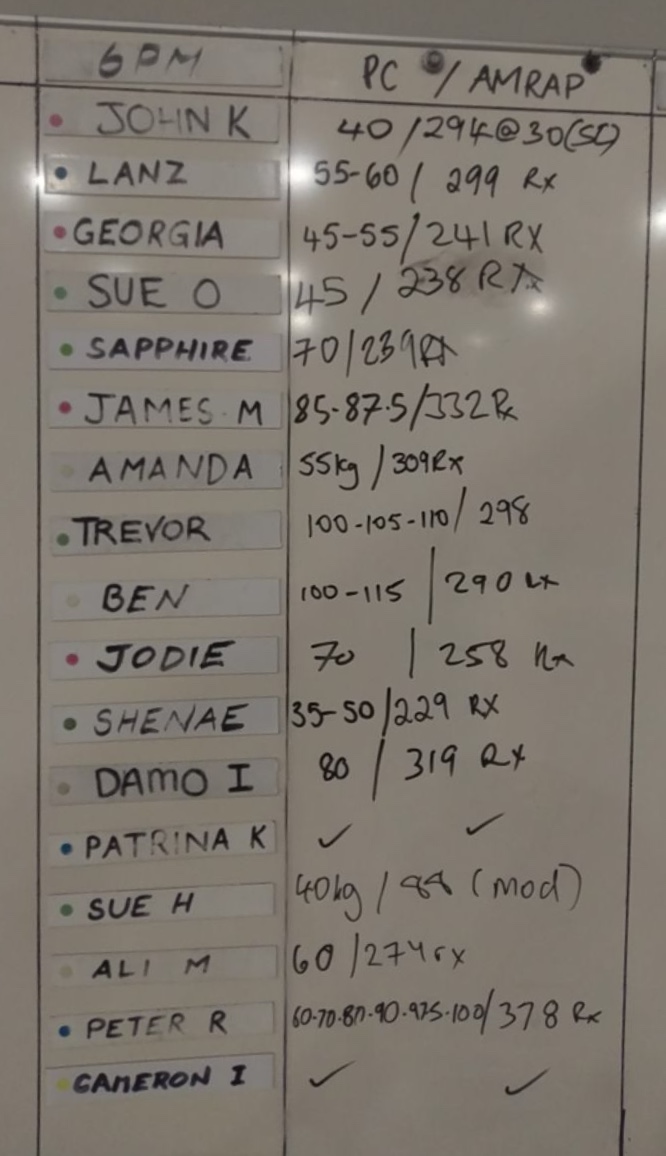 6PM PC / AMRAP
JOHN K 40 /294@30(SC)
LANZ 55-60 / 299 Rx
GEORGIA 45-55/241 RX
SUE O 45 / 238 RX
SAPPHIRE 70/239 RX
JAMES M 85-87.5/332 Rx
AMANDA 55kg /309 Rx
TREVOR 100-105-110/ 298
BEN 100-115 / 290 Rx
JODIE 70 / 258 Rx
SHENAE 35-50/229 RX
DAMO I 80 / 319 Rx
PATRINA K ✓ ✓
SUE H 40kg / (mod)
ALI M 60 /274 rx
PETER R 60-70-80-90-97.5-100/378 Rx
CAMERON I ✓ ✓